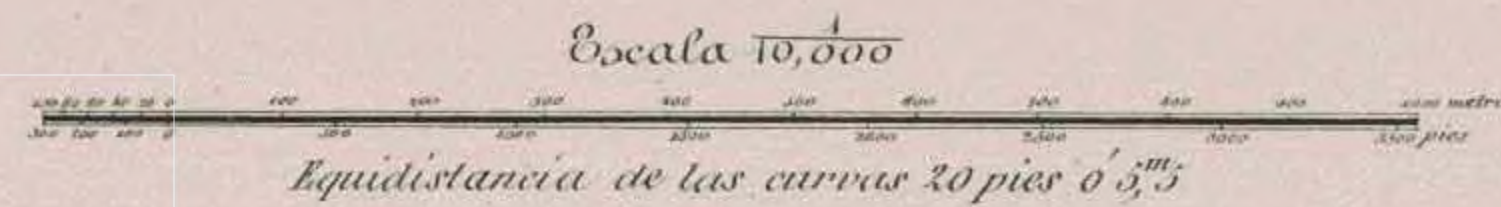 Escala 1/10,000
100 80 60 40 20 0 100 200 300 400 500 600 700 800 900 1000 metro
300 200 100 0 500 1000 1500 2000 2500 3000 3500 pies
Equidistancia de las curvas 20 pies ó 5,m5